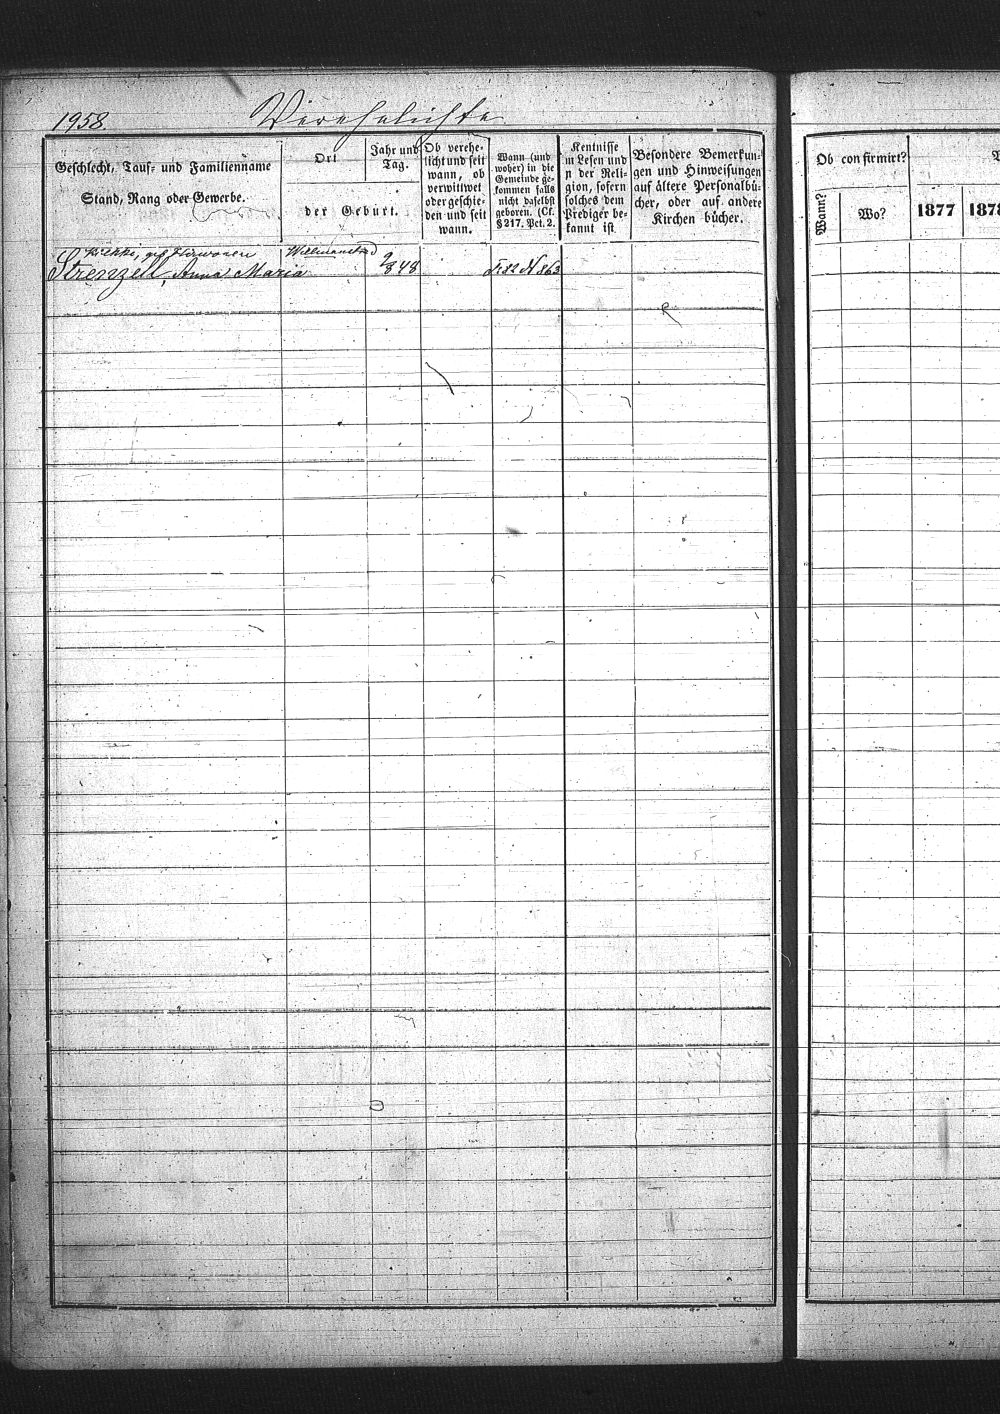 1958. Verehelichte
Geschlecht, Tauf- und Familienname
Stand, Rang oder Gewerbe.
Ort
Jahr und
Tag.
der Geburt.
Ob verehe-
licht und seit
wann, ob
verwittwet
oder geschie-
den und seit
wann.
Wann (und
woher) in die
Gemeinde ge-
kommen falls
nicht daselbst
geboren. (Cf.
§ 217. Pct. 2.
Kentnisse
in Lesen und
n der Reli-
gion, sofern
solches dem
Prediger be-
kannt ist
Besondere Bemerkun-
gen und Hinweisungen
auf ältere Personalbü-
cher, oder auf andere
Kirchen bücher.
Kiekki, geb. Willmanstrand
Strenzell, Anna Maria 9/8 48 F.82 N 863
Ob con firmirt?
Wann?
Wo?
1877 1878